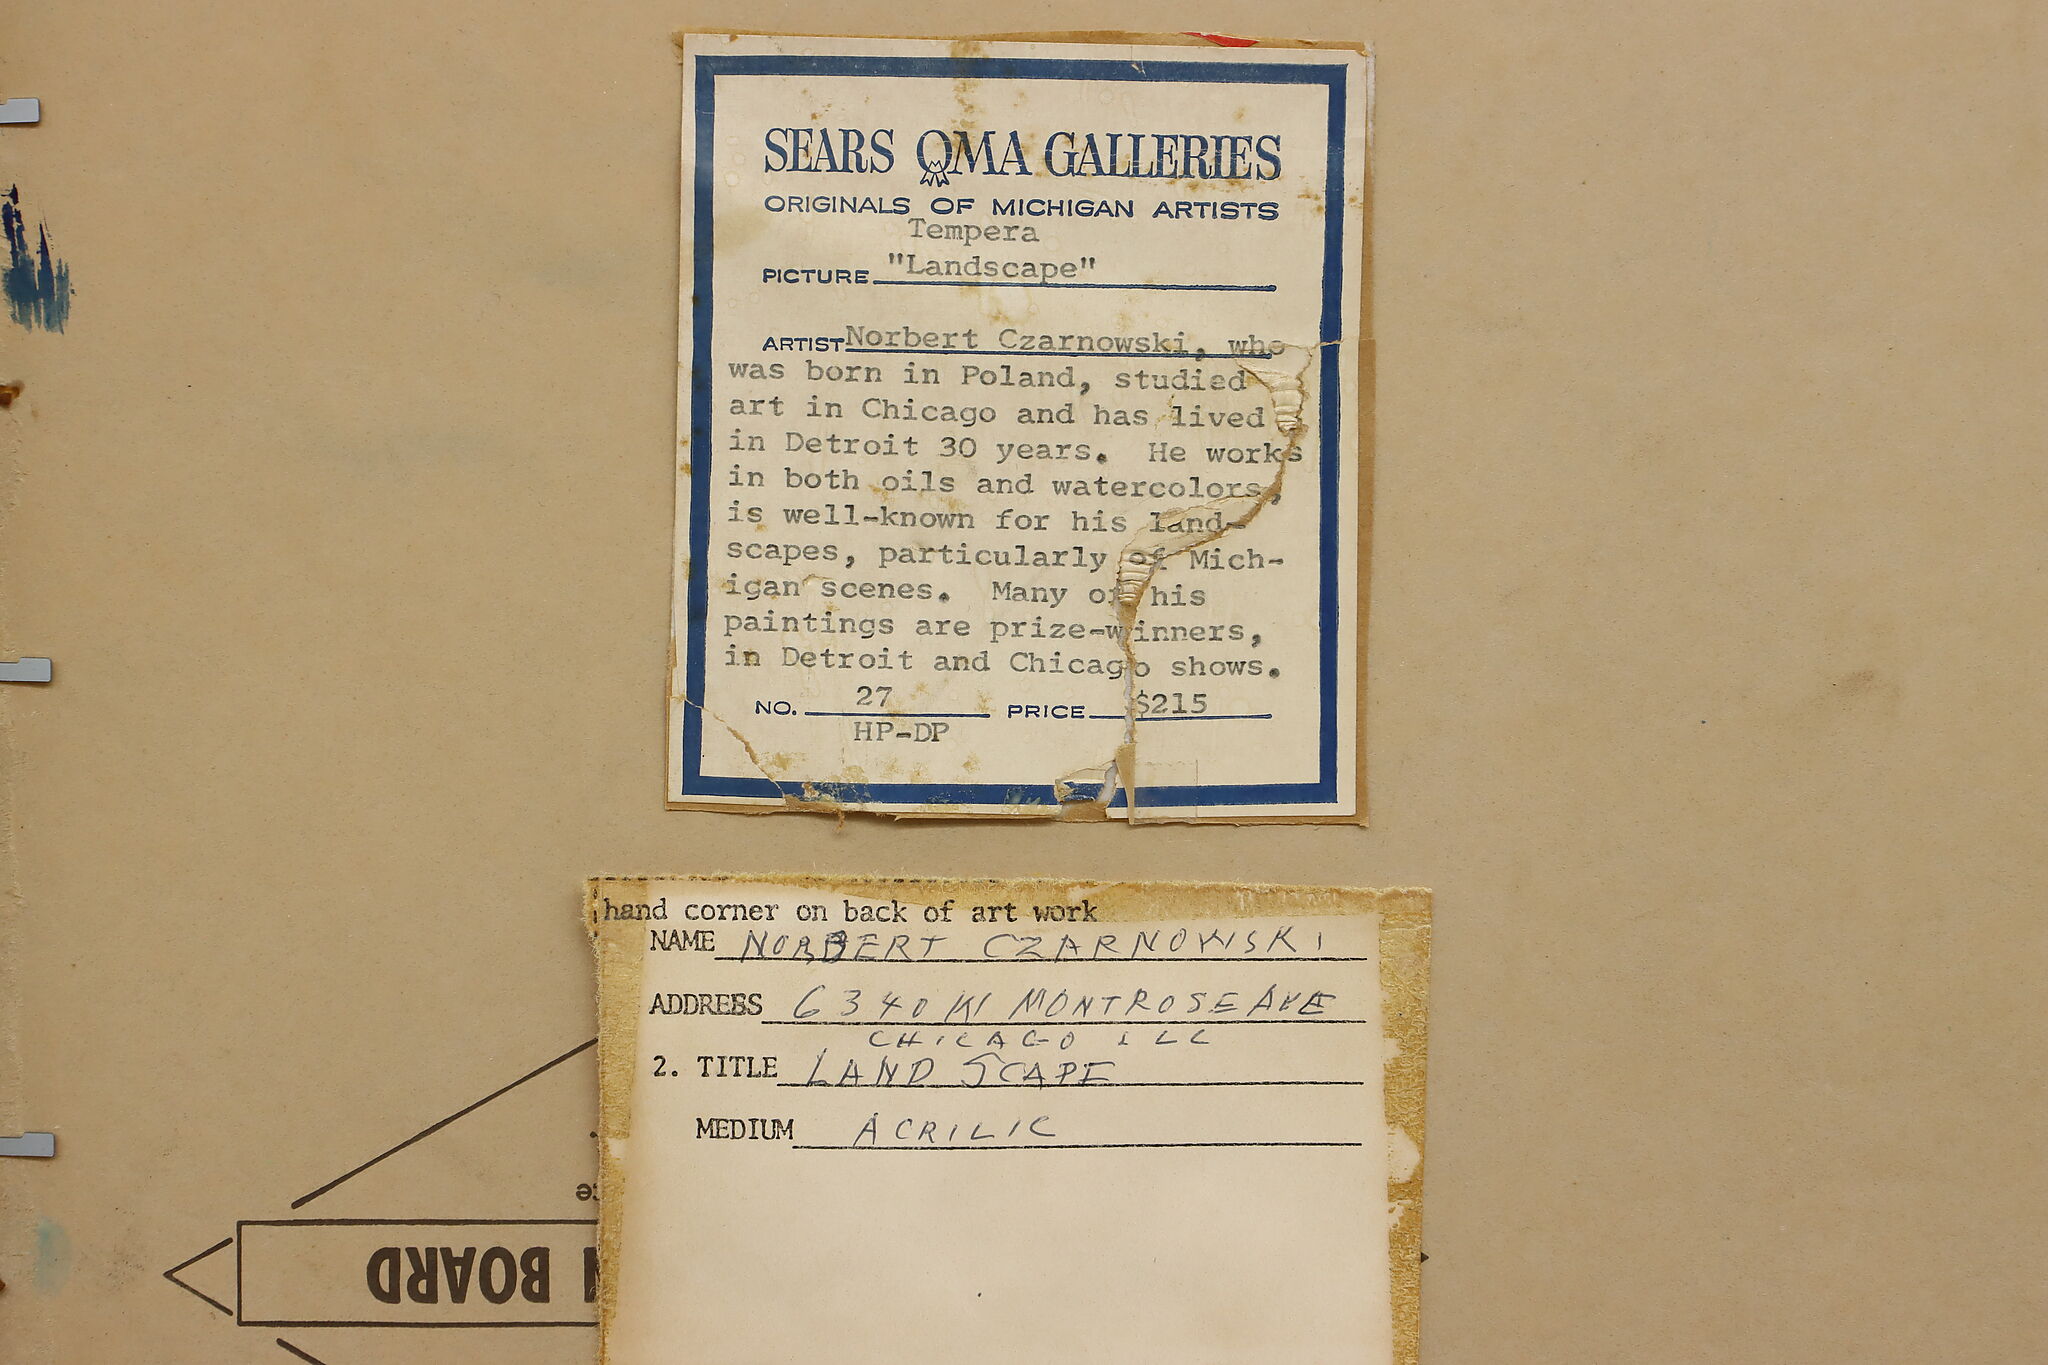 SEARS OMA GALLERIES
ORIGINALS OF MICHIGAN ARTISTS
Tempera
PICTURE "Landscape"
ARTIST Norbert Czarnowski, who
was born in Poland, studied
art in Chicago and has lived
in Detroit 30 years. He works
in both oils and watercolors,
is well-known for his land-
scapes, particularly of Mich-
igan scenes. Many of his
paintings are prize-winners,
in Detroit and Chicago shows.
NO. 27 PRICE $215
HP-DP
hand corner on back of art work
NAME NORBERT CZARNOWSKI
ADDRESS 6340 W MONTROSE AVE
CHICAGO ILL
2. TITLE LAND SCAPE
MEDIUM ACRILIC
BOARD